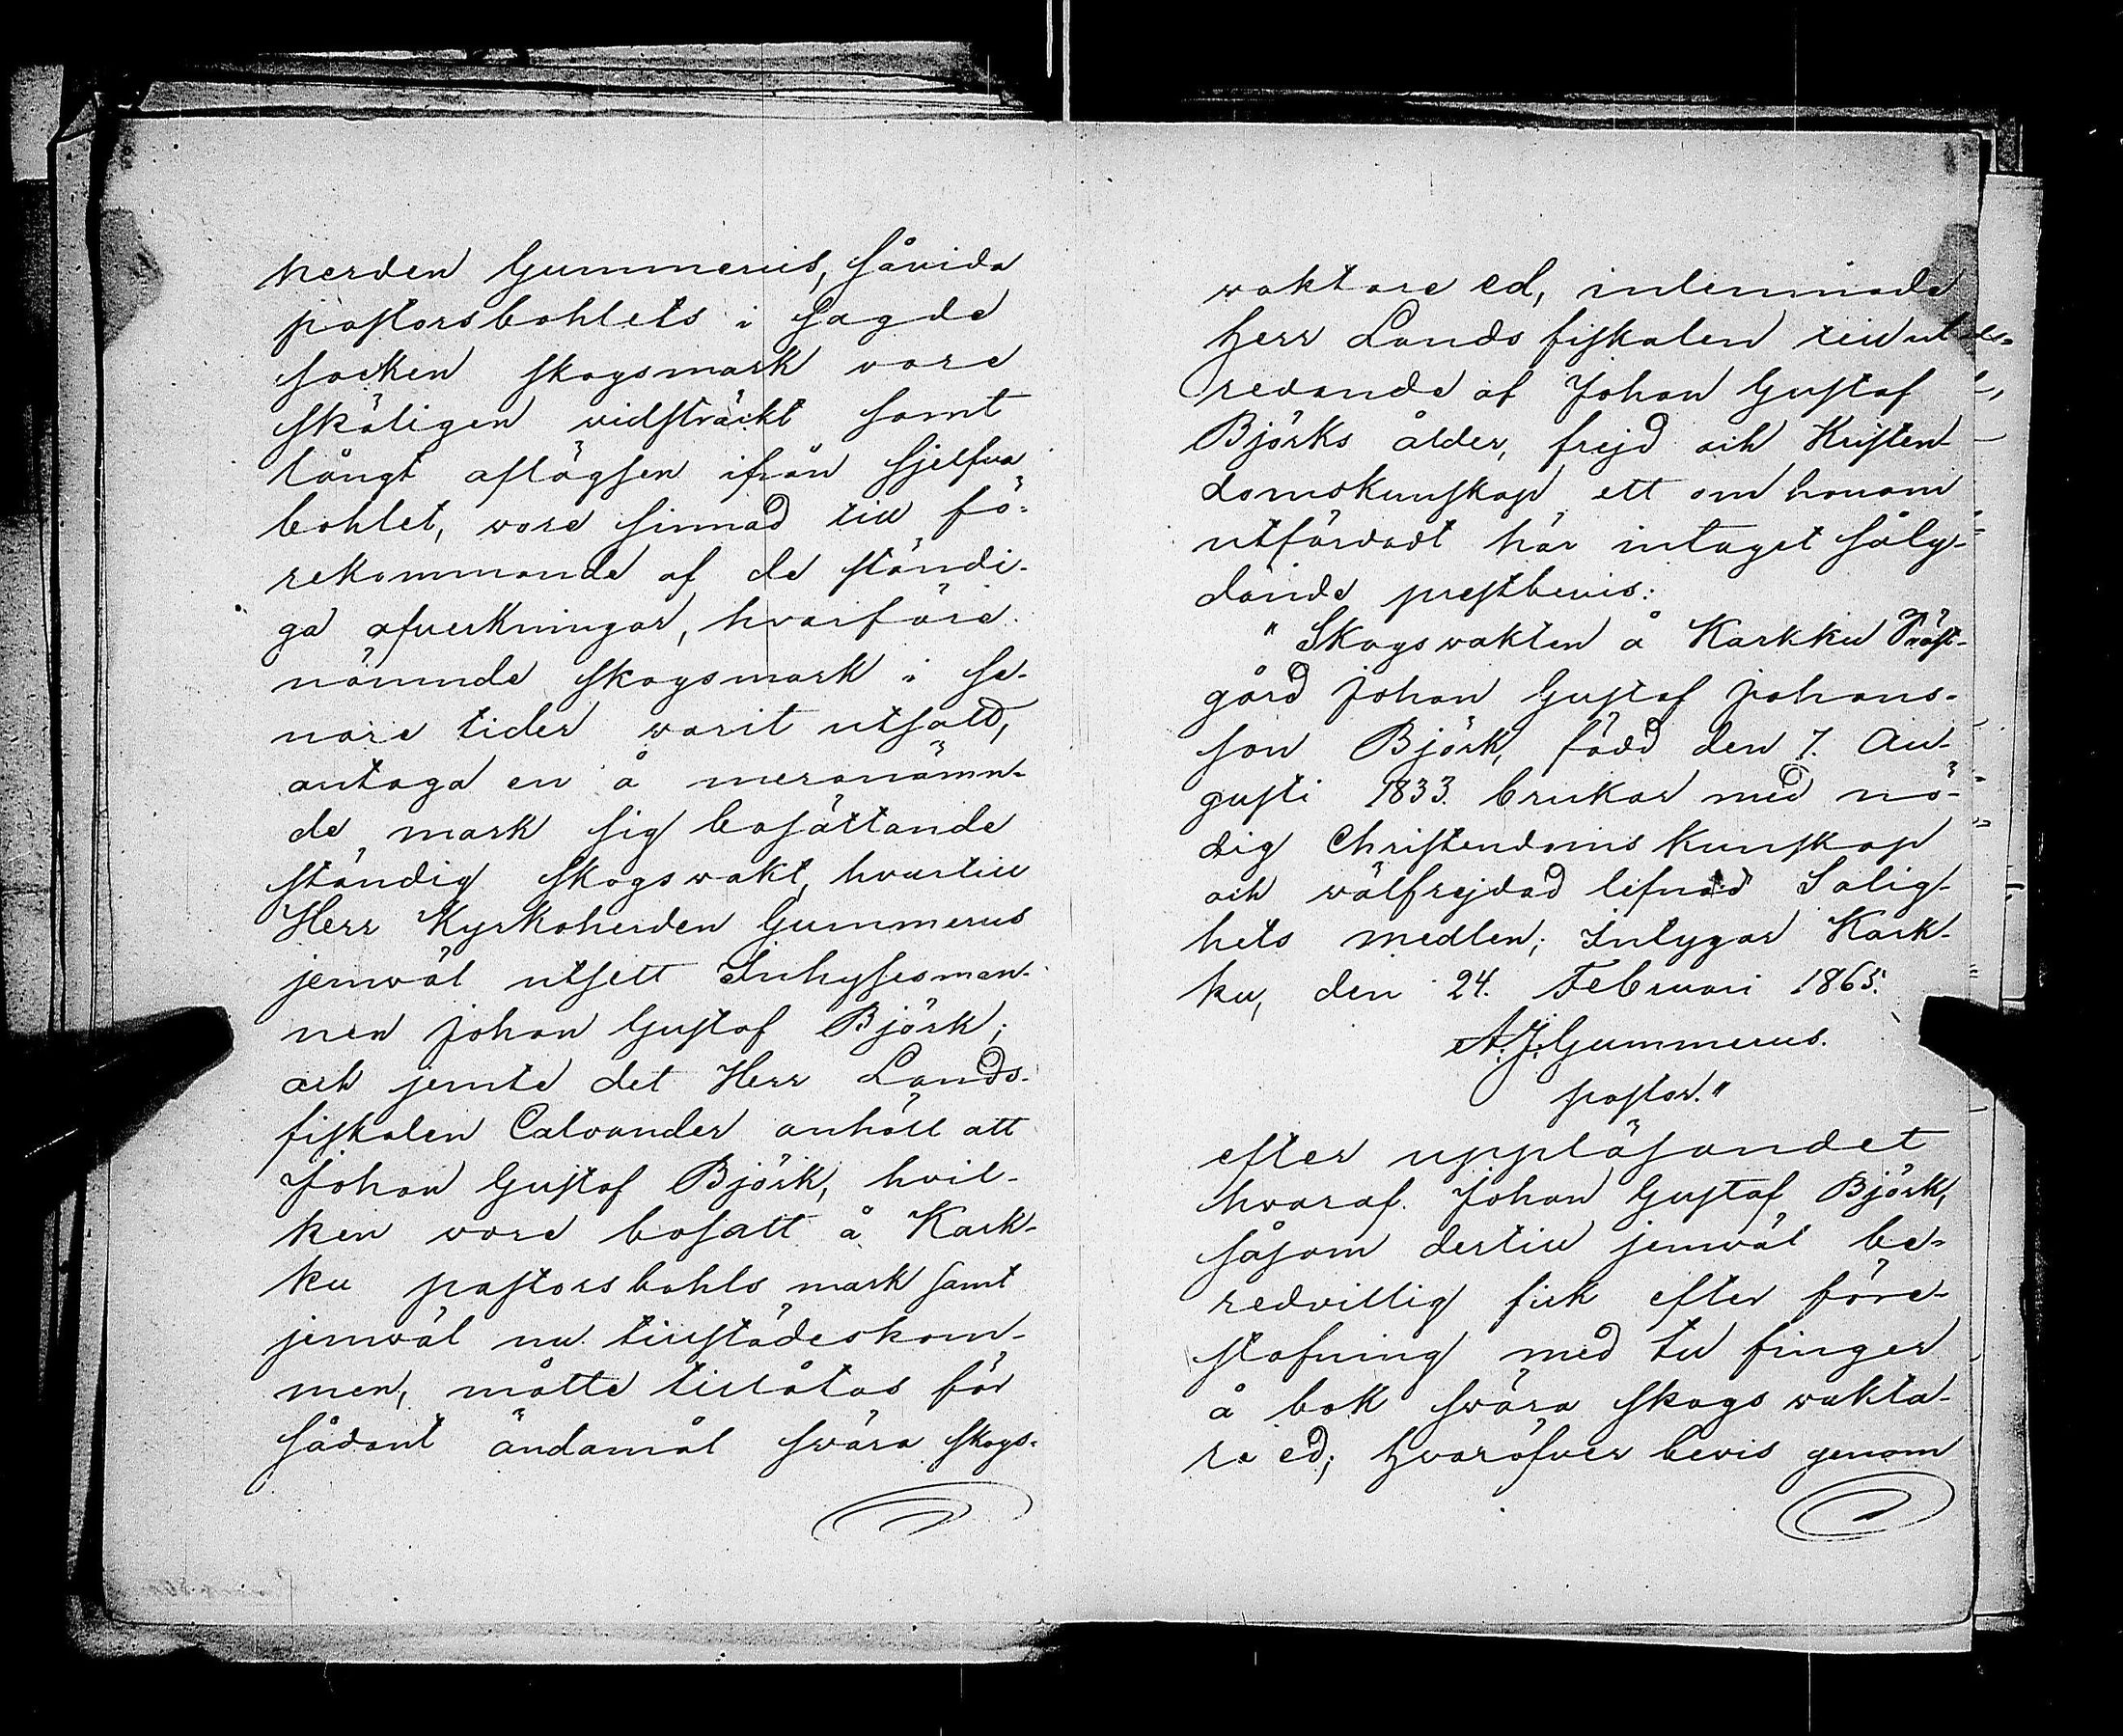 herden Gummerus, såvida
pastorsbohlets i sagde
socken skogsmark vore
skäligen vidsträckt samt
långt aflägsen ifrån sjelfva
bohlet, vore sinnad till fö-
rekommande af de ständi-
ga afverkningar, hvarföre
nämnde skogsmark i se-
nare tider warit utsatt,
antaga en å meranämn-
de mark sig bosättande
ständig skogswakt, hvartill
Herr Kyrkoherden Gummerus
jemwäl utsett Inhysesman-
nen Johan Gustaf Björk;
och jemte det Herr Lands-
fiskalen Calvander anhöll att
Johan Gustaf Björk, hvil-
ken vore bosatt å Kark-
ku pastorsbohls mark samt
jemwäl nu tillstädeskom-
men, måtte tillåtas för
sådant ändamål swära skogs-
waktare ed, inlemnade
Herr Landsfiskalen till ut-
redande af Johan Gustaf
Björks ålder, frejd och Kristen-
domskunskap ett om honom
utfärdadt här intaget såly-
dande prestbevis:
"Skogswakten å Karkku Präst-
gård Johan Gustaf Johans-
son Björk, född den 7. Au-
gusti 1833. brukar med nö-
dig Christendoms kunskap
och wälfrejdad lefnad Salig-
hets medlen; Intygar Kark-
ku, den 24. Februari 1865.
A. J. Gummerus.
pastor."
efter uppläsandet
hvaraf Johan Gustaf Björk,
såsom dertill jemwäl be-
redvillig fick efter före-
stafning med tu finger
å bok swära skogswakta-
re ed; hvaröfver bevis genom